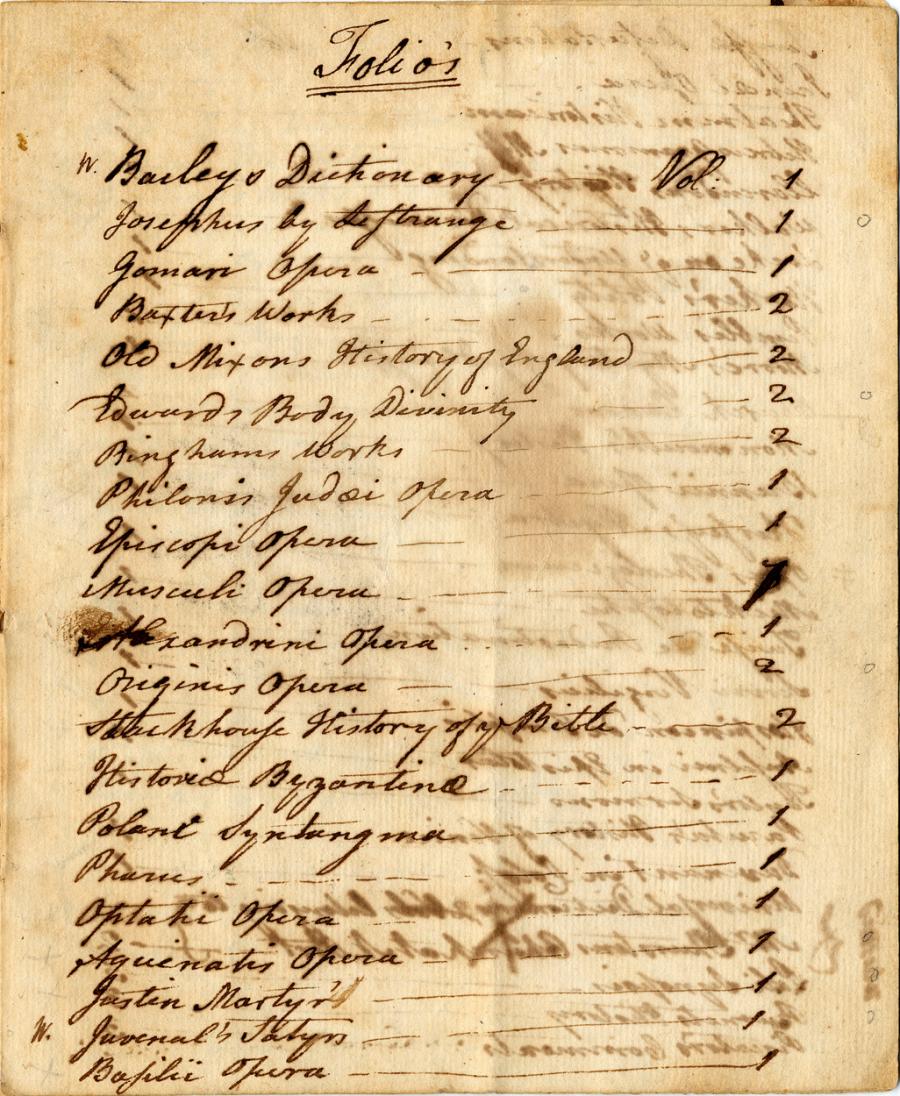 Folio's
W. Baileys Dictionary Vol: 1
Josephus by Lestrange 1
Gomari Opera 1
Baxters Works 2
Old Mixons History of England 2
Edwards Body Divinity 2
Binghams Works 2
Philonis Judæi Opera 1
Episcopi Opera 1
Musculi Opera 1
Alexandrini Opera 1
Originis Opera 2
Stackhouse History of ye Bible 2
Historiæ Byzantinæ 1
Polani Syntangma 1
Pharus 1
Optati Opera 1
Aquenatis Opera 1
Justin Martyr's 1
W. Juvenal's Satyrs 1
Basilii Opera 1